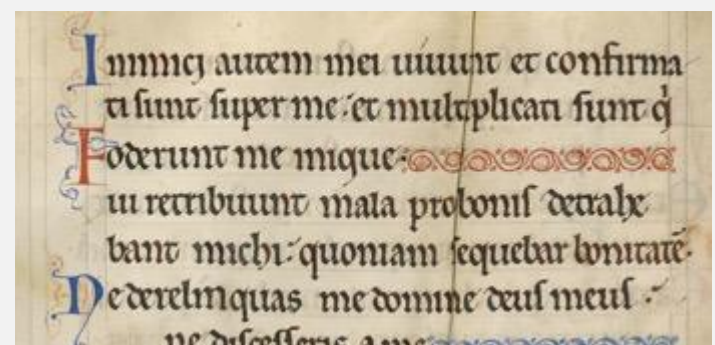 Inimicj autem mei uiuunt et confirma
ti sunt super me: et multiplicati sunt q̇
Foderunt me inique.
ui retribuunt mala probonis detrahe
bant michi: quoniam sequebar bonitatē.
Ne derelinquas me domine deus meus:
ne discesseris a me